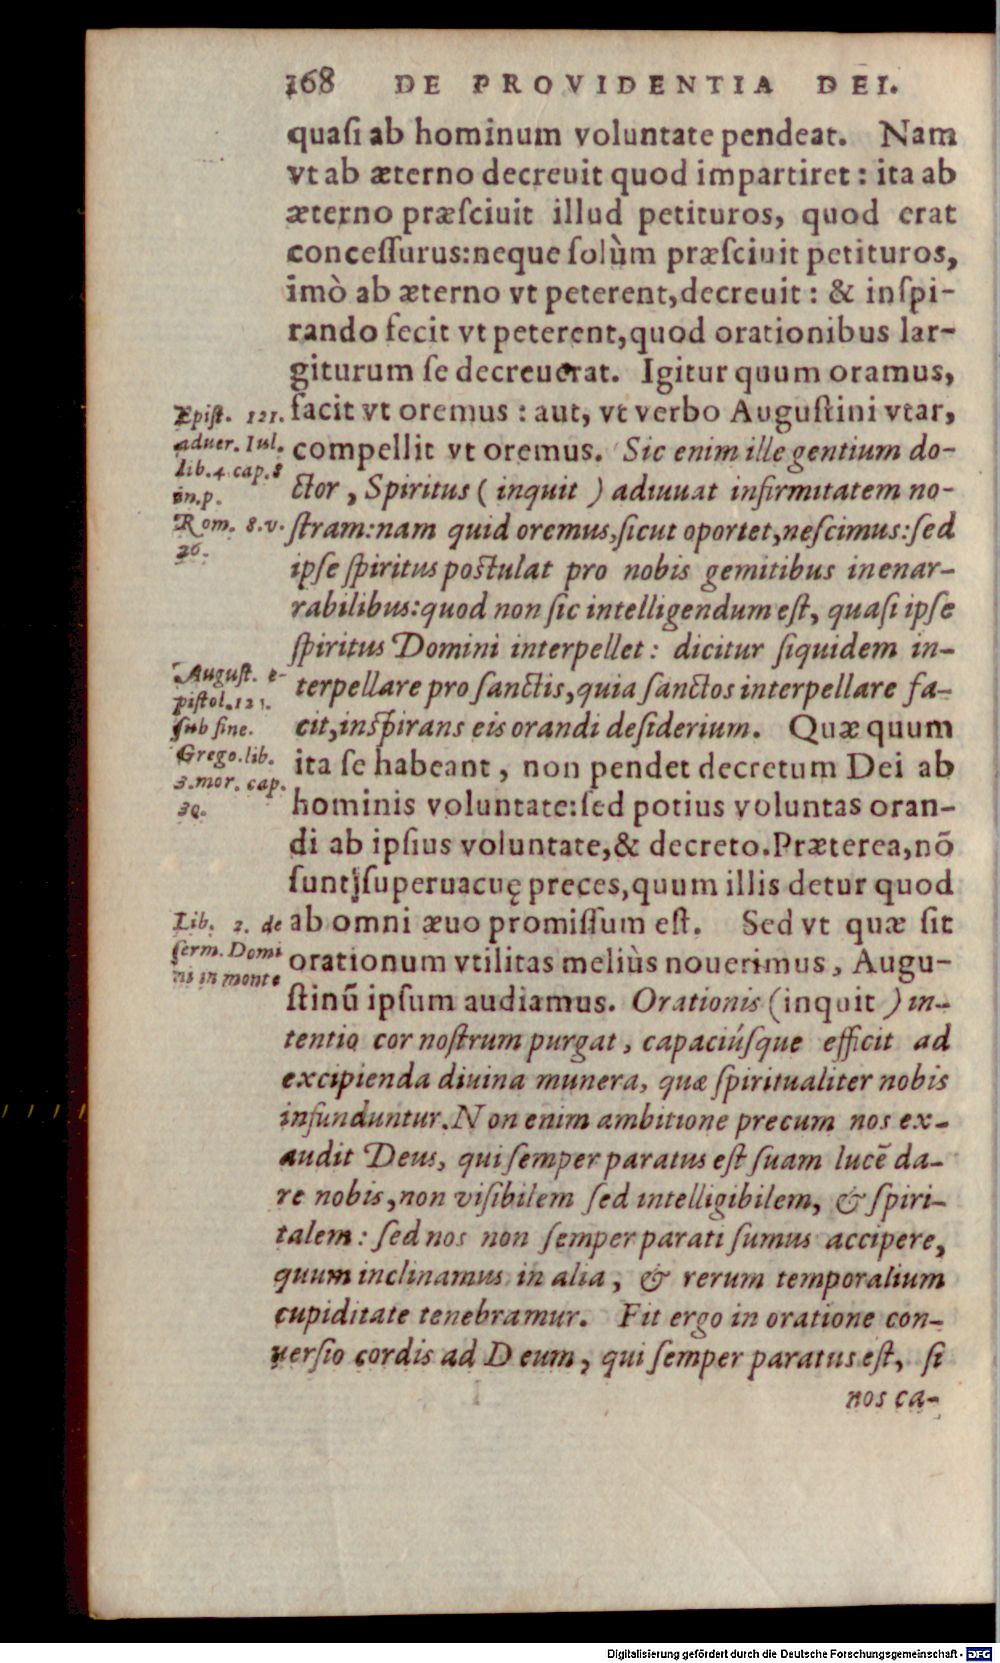 168 DE PROVIDENTIA DEI.
quaſi ab hominum voluntate pendeat. Nam
vt ab æterno decreuit quod impartiret : ita ab
æterno præſciuit illud petituros, quod erat
conceſſurus:neque ſolùm præſciuit petituros,
imò ab æterno vt peterent,decreuit : & inſpi-
rando fecit vt peterent,quod orationibus lar-
giturum ſe decreuerat. Igitur quum oramus,
facit vt oremus : aut, vt verbo Auguſtini vtar,
compellit vt oremus. Sic enim ille gentium do-
ctor, Spiritus ( inquit ) adiuuat infirmitatem no-
ſtram:nam quid oremus,ſicut oportet,neſcimus:ſed
ipſe ſpiritus poſtulat pro nobis gemitibus inenar-
rabilibus:quod non ſic intelligendum eſt, quaſi ipſe
ſpiritus Domini interpellet : dicitur ſiquidem in-
terpellare pro ſanctis,quia ſanctos interpellare fa-
cit,inſpirans eis orandi deſiderium. Quæ quum
ita ſe habeant, non pendet decretum Dei ab
hominis voluntate:ſed potius voluntas oran-
di ab ipſius voluntate,& decreto.Præterea,nō
ſunt ſuperuacuę preces,quum illis detur quod
ab omni æuo promiſſum eſt. Sed vt quæ ſit
orationum vtilitas meliùs nouerimus, Augu-
ſtinū ipſum audiamus. Orationis (inquit ) in-
tentio cor noſtrum purgat, capaciúſque efficit ad
excipienda diuina munera, quæ ſpiritualiter nobis
infunduntur.Non enim ambitione precum nos ex-
audit Deus, qui ſemper paratus eſt ſuam lucē da-
re nobis,non viſibilem ſed intelligibilem, & ſpiri-
talem : ſed nos non ſemper parati ſumus accipere,
quum inclinamus in alia, & rerum temporalium
cupiditate tenebramur. Fit ergo in oratione con-
uerſio cordis ad Deum, qui ſemper paratus eſt, ſi
nos ca-
Epiſt. 121.
aduer. Iul.
lib.4.cap.8
in.p.
Rom. 8.v.
26.
Auguſt. e-
piſtol.121.
ſub fine.
Grego.lib.
3.mor. cap.
30.
Lib. 2. de
ſerm. Domi
ni in monte
Digitalisierung gefördert durch die Deutsche Forschungsgemeinschaft - DFG